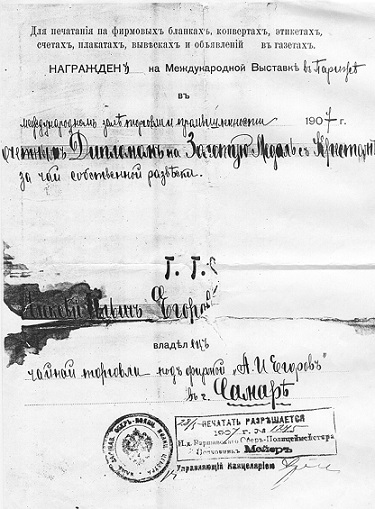 Для печатанія на фирмовыхъ бланкахъ, конвертахъ, этикетахъ,
счетахъ, плакатахъ, вывѣскахъ и объявленій въ газетахъ.
НАГРАЖДЕНЪ на Международной Выставкѣ въ Парижѣ
въ
международномъ залѣ торговли и промышленности 1907 г.
Дипломомъ на Золотую Медаль съ Крестомъ
за чай собственной развѣски.
Г. Г.
Егоров
владѣлецъ
чайной торговли подъ фирмой „А. И Егоровъ"
въ г. Самарѣ
ПЕЧАТАТЬ РАЗРѢШАЕТСЯ
1907 г.
И. д. Варшавскаго Оберъ-Полицеймейстера
Полковникъ Мейеръ
Управляющій Канцеляріею